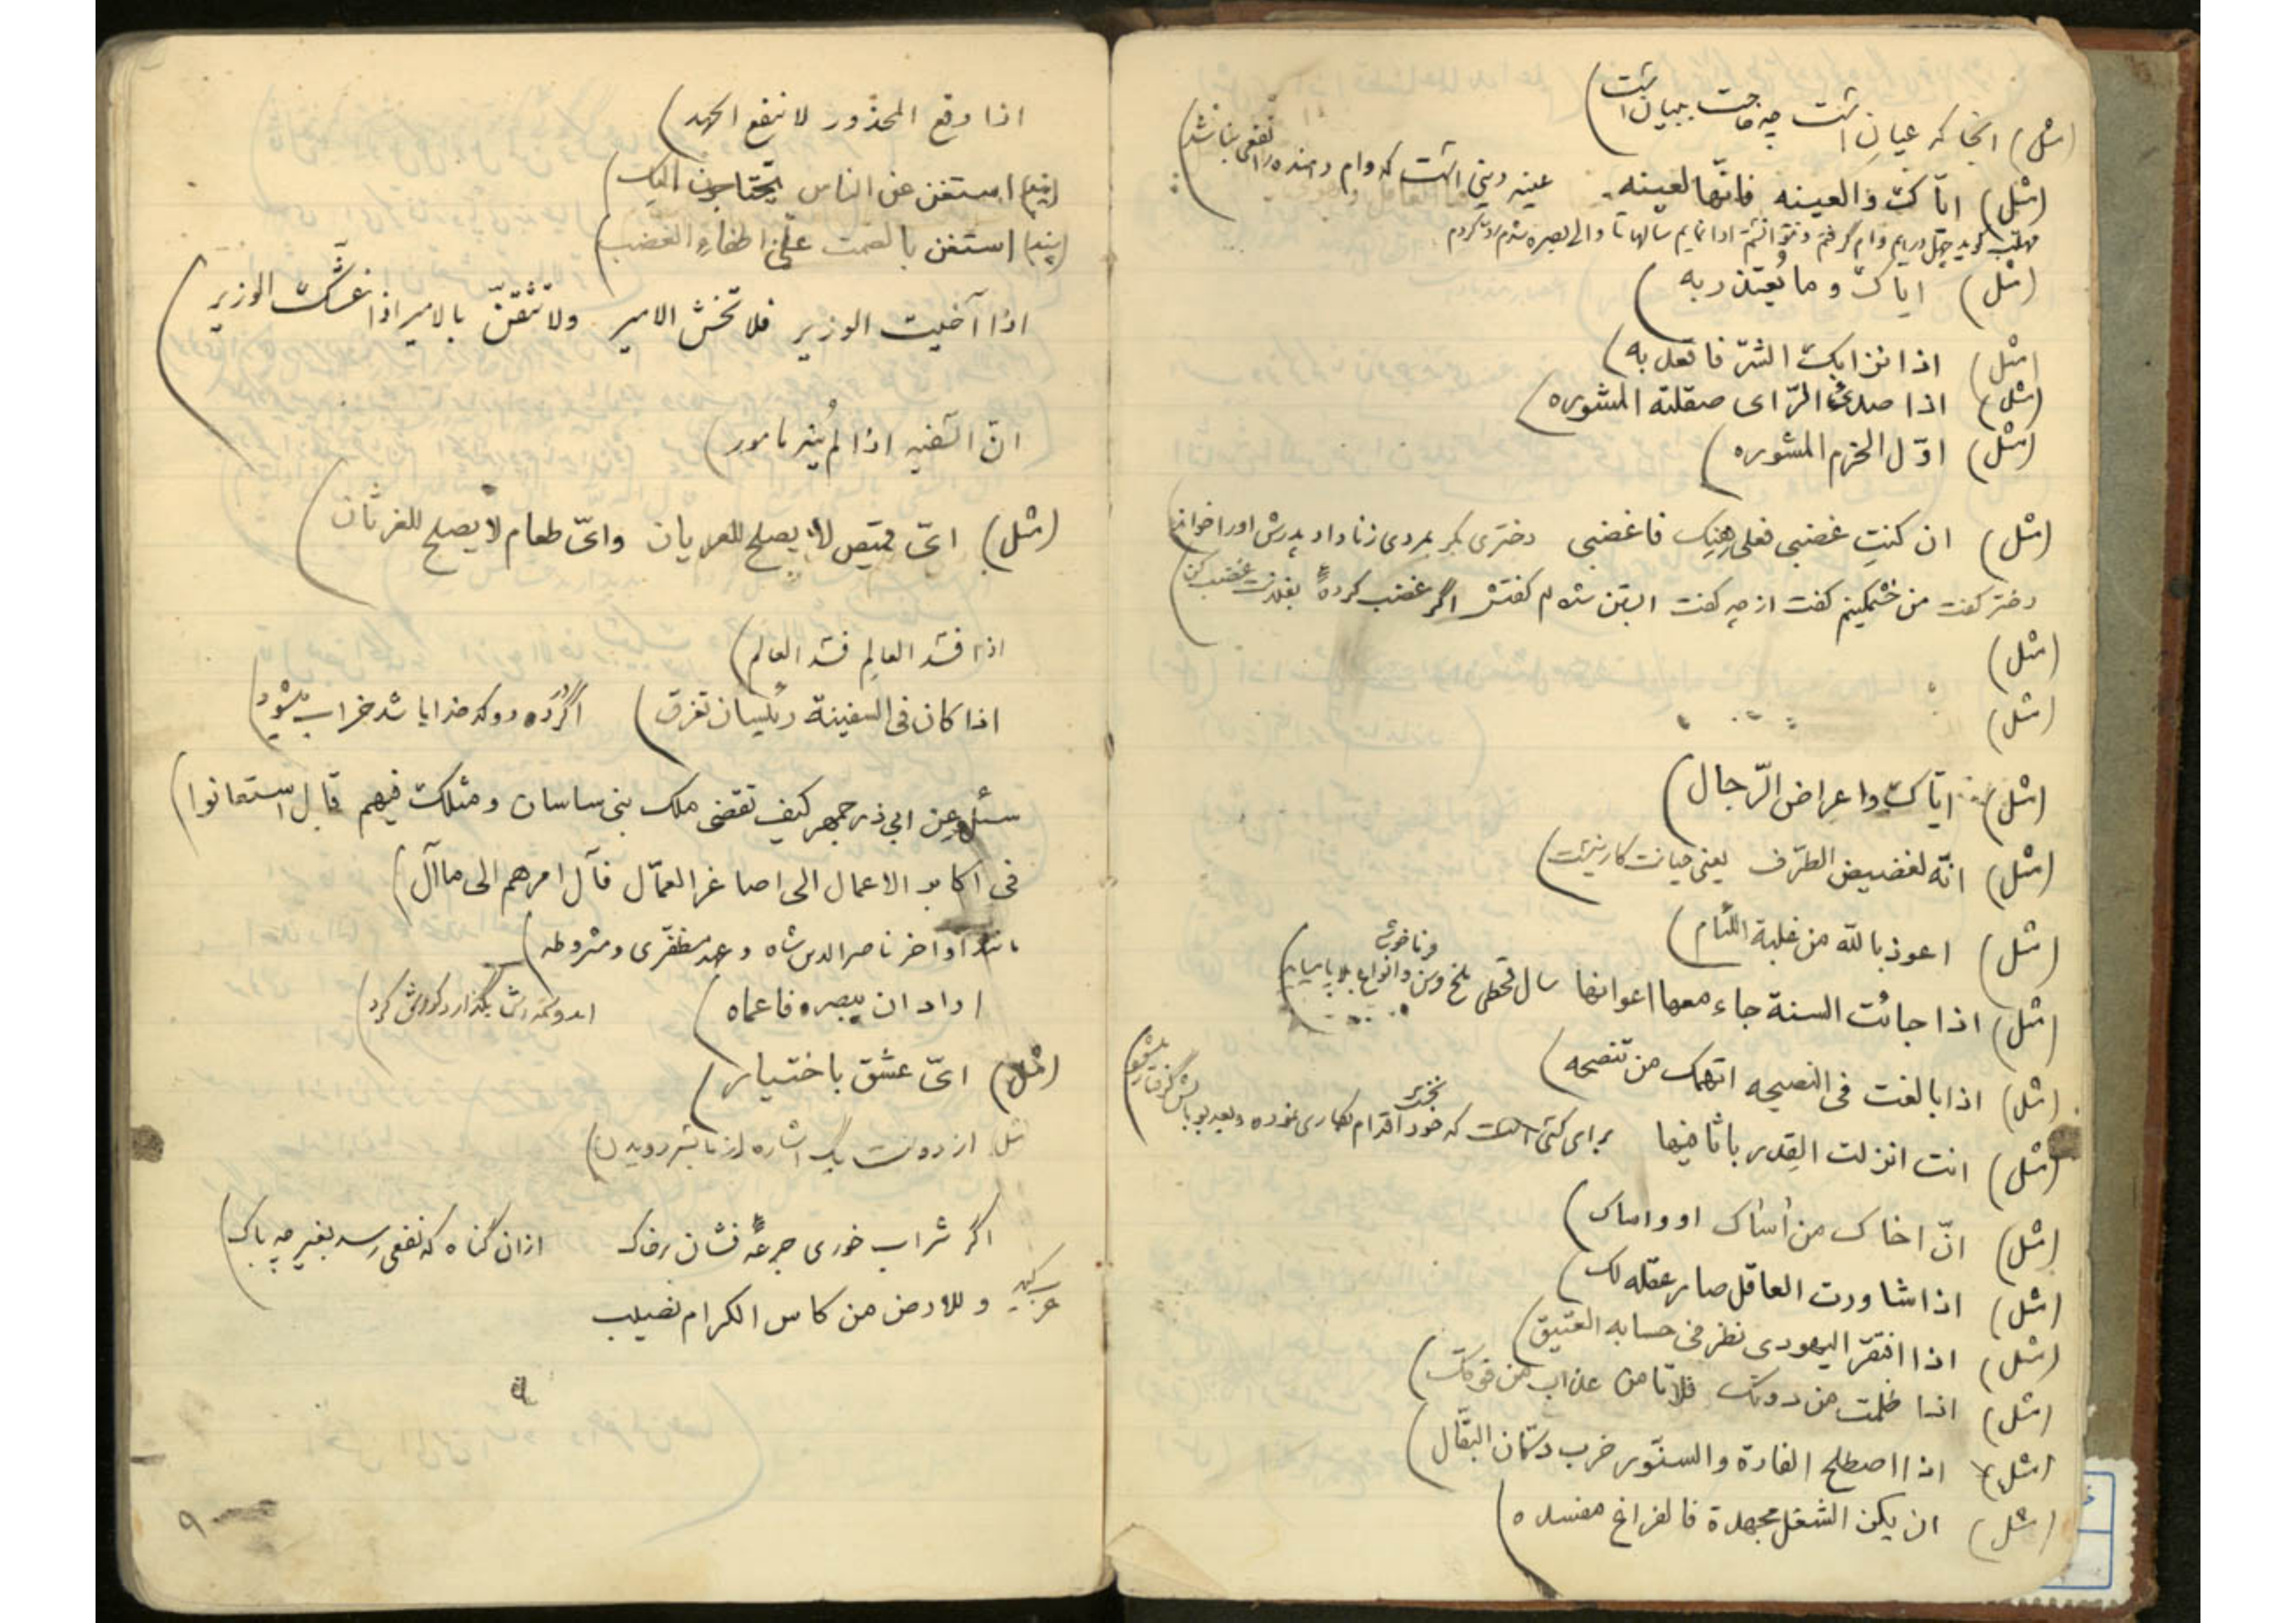 (مثل) انجا که عیان است چه حاجت ببیان است)
(مثل) ایّاک والعینه فانّها لعینه عینه دینی است که وام دهنده را نفعی باشد)
مهلب گوید چهل درهم وام گرفتم و نتوانستم ادا نمایم سالها تا والی بصره شدم رد کردم
(مثل) ایاک و ما یُعتذر به)
(مثل) اذا نزا بک الشرّ فاقعد به)
(مثل) اذا صدئ الرّای صقلته المشوره)
(مثل) اوّل الحزم المشوره)
(مثل) ان کنتِ غضبی فعلی هنک فاغضبی دختری بکر بمردی زنا داد پدرش او را خواند
دختر گفت من خشمگینم گفت از چه گفت ابستن شدم گفتش اگر غضب کردهٔ غضب کن)
(مثل)
(مثل)
(مثل) ایّاک واعراض الرّجال)
(مثل) انّه لغضیض الطرّف یعنی خیانت کار نیست)
(مثل) اعوذ بالله من غلبة اللئام)
و ناخوشی
(مثل) اذا جائت السنة جاء معها اعوانها سال قحطی ملخ و سن و انواع بلایا بیاید)
(مثل) اذا بالغت فی النصیحه اتهمک من تنصحه)
(مثل) انت انزلت القِدر باثافیها برای کسی است که خود اقدام بکاری نموده و بعد
(مثل) انّ اخاک من آساک او واساک)
(مثل) اذا شاورت العاقل صار عقله لک)
(مثل) اذا افتقر الیهودی نظر فی حسابه العتیق)
(مثل) اذا ظلمت من دونک فلا تامن عذاب من فوقک)
(مثل) اذا اصطلح الفارة والسنّور خرب دکّان البقّال)
(مثل) ان یکن الشغل مجهدة فالفراغ مفسده)
اذا وقع المحذور لا ینفع الجهد)
(پند) استغن عن الناس یحتاجون الیک)
(پند) استعن بالصمت علی اطفاء الغضب)
اذا آخیت الوزیر فلا تخش الامیر ولا تثقنّ بالامیر اذا غشّک الوزیر)
انّ السّفیه اذا لم یُنه مامور)
(مثل) ایّ قمیص لا یصلح للعریان وایّ طعام لا یصلح للغرثان)
اذا فسد العالِم فسد العالَم)
اذا کان فی السفینة رئیسان تغرق) اگر در ده دو کدخدا باشد خراب میشود)
سئل عن ابی ذرجمهر کیف تقضی ملک بنی ساسان ومثلک فیهم قال استعانوا)
فی اکابر الاعمال الی اصاغر العمّال فآل امرهم الی ما آل)
مانند اواخر ناصرالدین شاه و عهد مظفّری و مشروطه)
اراد ان یبصره فاعماه) امد وسمه اش بگذارد کورش کرد)
(مثل) ایّ عشق باختیار)
مثل از دوست یک اشاره از ما بسر دویدن)
اگر شراب خوری جرعهٔ فشان بر خاک ازان گناه که نفعی رسد بغیر چه باک)
عربی وللارض من کاس الکرام نصیب
۹